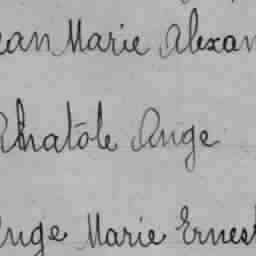 ean Marie Alexan
Anatole Ange
Ange Marie Ernest